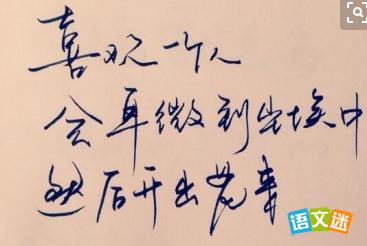 喜欢一个人
会卑微到尘埃中
然后开出花来
语文迷